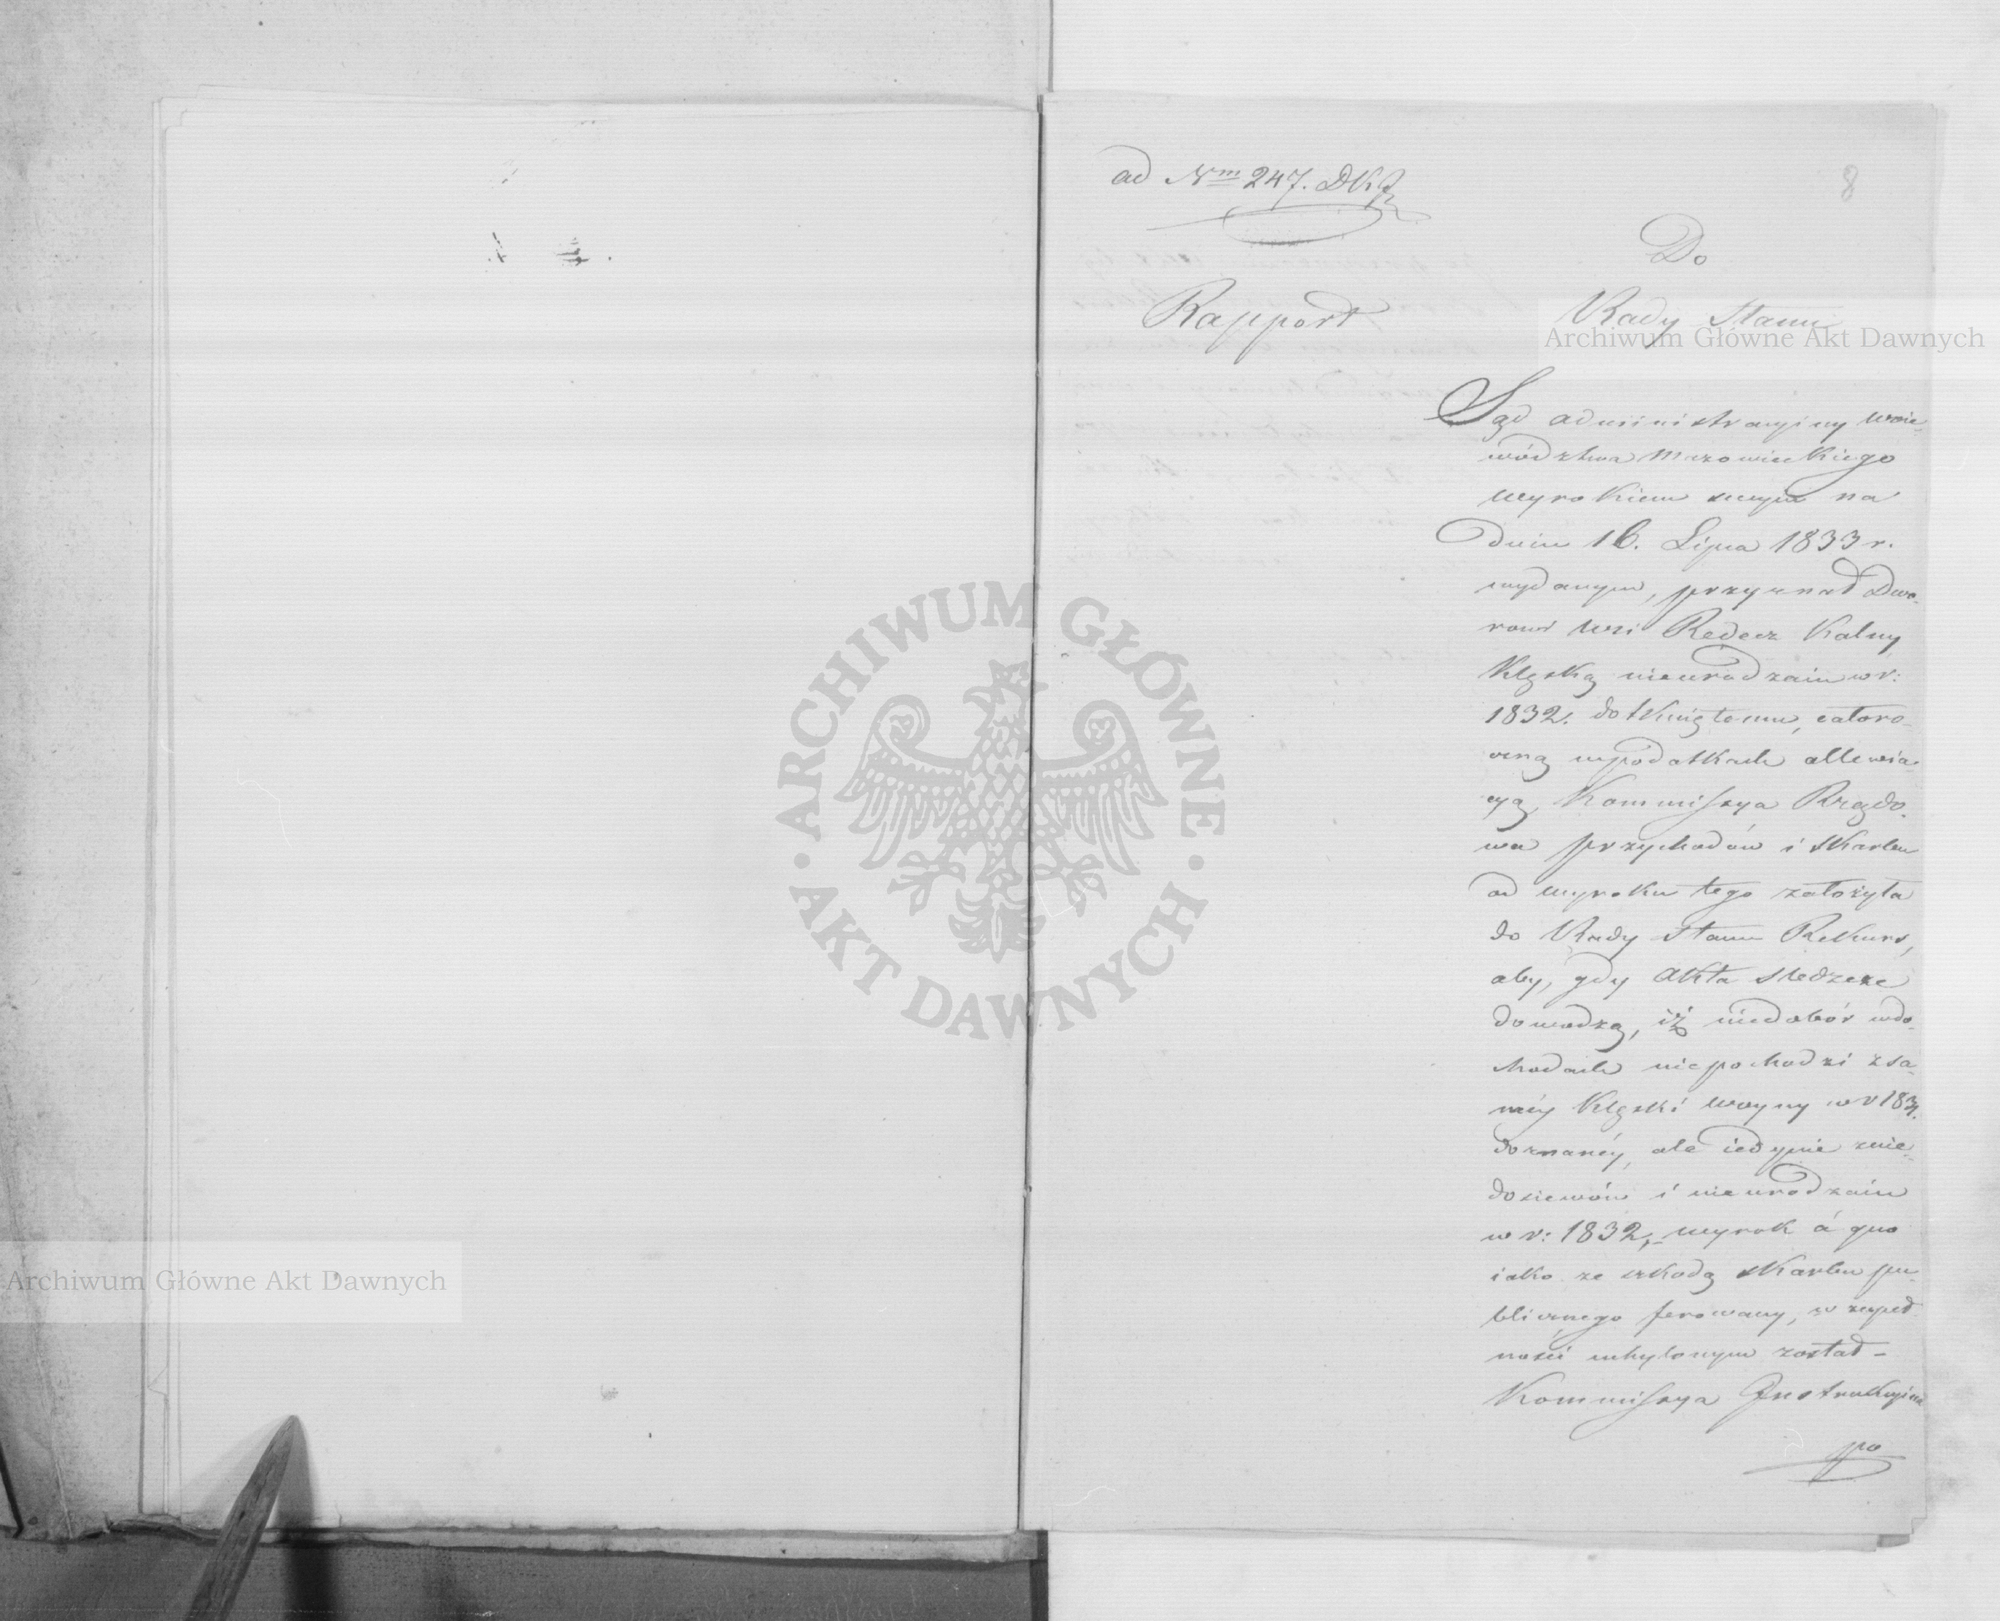 ad Nrm 247. DKP
8
Rapport
Do
Rady Stanu
Sąd administracyiny woie-
wództwa Mazowieckiego
wyrokiem swym na
dniu 16. Lipca 1833 r.
wydanym, przyznał Dwo-
rowi wsi Redecz Kalny
Klęską nieurodzaiu w r:
1832. dotkniętemu, cztoro-
czną w podatkach allewia-
cyą, Kommissya Rządo-
wa przychodów i Skarbu
od wyroku tego założyła
do Rady Stanu Rekurs,
aby, gdy Akta śledcze
dowodzą, iż niedobór w do-
chodach niepochodzi z sa-
méy Klęski woyny w r 1831.
doznanéy, ale iedynie z nie-
dosiewów i nieurodzaiu
w r: 1832, wyrok á quo
iako ze szkodą Skarbu pu-
blicznego ferowany, w zupeł-
ności uchylonym został -
Kommissya Instrukcyina
po
ARCHIWUM GŁÓWNE
AKT DAWNYCH
Archiwum Główne Akt Dawnych
Archiwum Główne Akt Dawnych